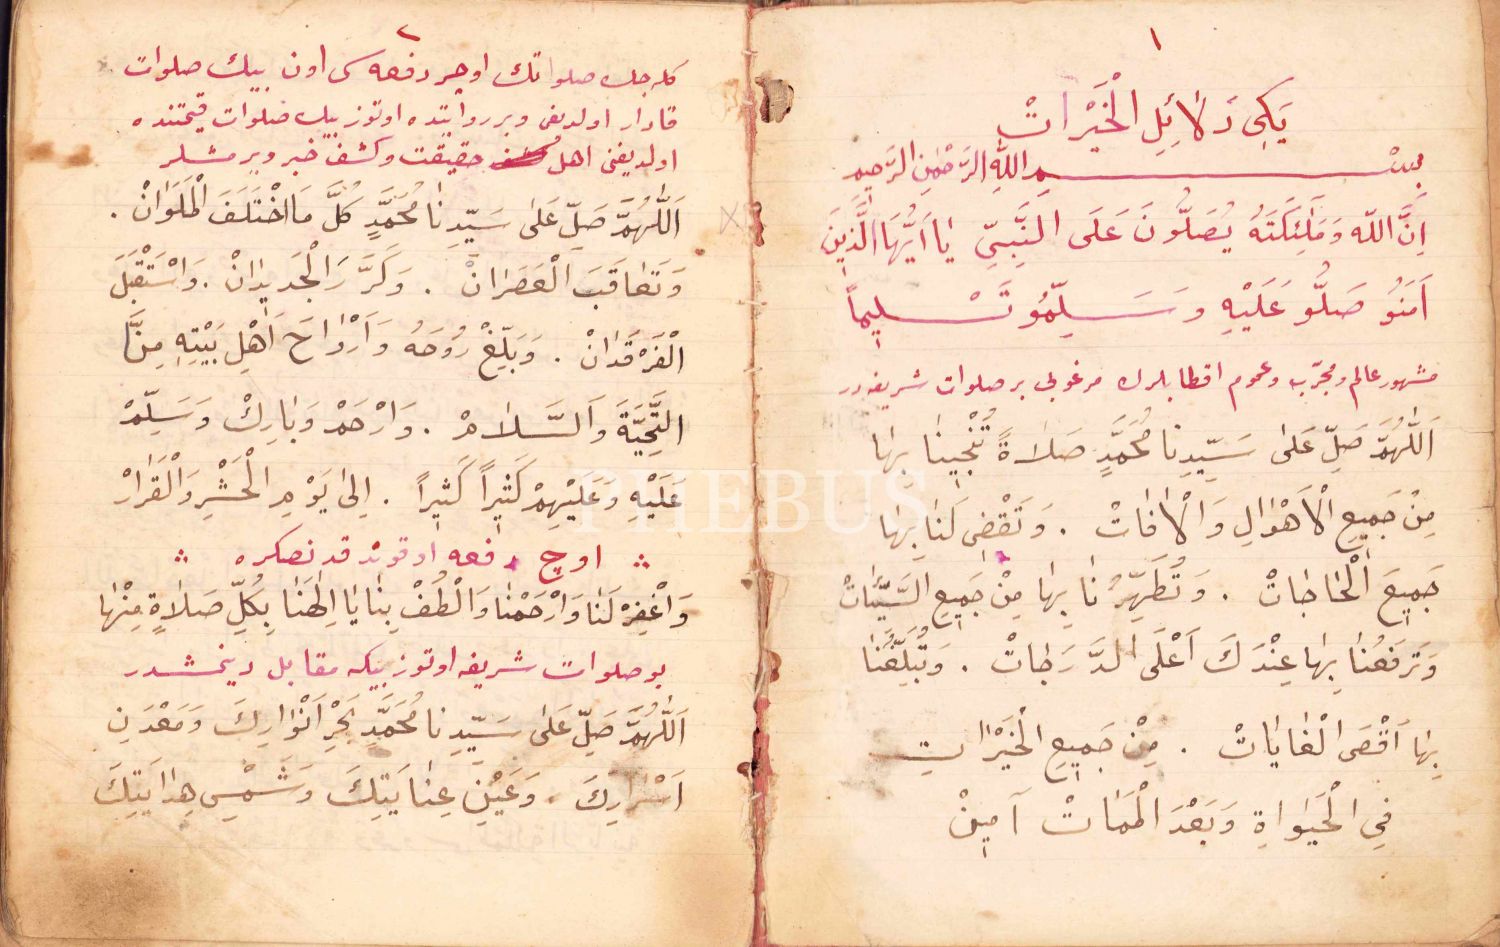 ١
يَكِى دَلَائِلِ الْخَيْرَاتْ
بِسْمِ اللّٰهِ الرَّحْمٰنِ الرَّحِيمِ
اِنَّ اللّٰه وَمَلٰئِكَتَهُ يُصَلُّونَ عَلَى النَّبِىِّ يَا اَيُّهَا الَّذِينَ
اَمَنُو صَلُّو عَلَيْهِ وَسَلِّمُو تَسْلِيمًا
مشهور عالم ومجرّب وعموم اقطابلرك مرغوبى بر صلوات شريفه در
اَللّٰهُمَّ صَلِّ عَلٰى سَيِّدِنَا مُحَمَّدٍ صَلَاةً تُنْجِينَا بِهَا
مِنْ جَمِيعِ الْاَهْوَالِ وَالْاٰفَاتْ . وَتَقْضِى لَنَا بِهَا
جَمِيعَ الْحَاجَاتْ . وَتُطَهِّرُنَا بِهَا مِنْ جَمِيعِ السَّيِّئَاتْ
وَتَرفَعُنَا بِهَا عِنْدَكَ اَعْلَى الدَّرَجَاتْ . وَتُبَلِّغُنَا
بِهَا اَقْصَى الْغَايَاتْ . مِنْ جَمِيعِ الْخَيْرَاتِ
فِى الْحَيٰواةِ وَبَعْدَ الْمَمَاتْ آمِينْ
٢
كله جك صلواتك اوچر دفعه سى اون بيك صلوات
قادار اولديغى وبر روايتده اوتوز بيك صلوات قيمتنده
اولديغنى اهل حقيقت وكشف خبر ويرمشلر
اَللّٰهُمَّ صَلِّ عَلٰى سَيِّدِنَا مُحَمَّدٍ كُلَّ مَا اخْتَلَفَ الْمَلَوَانْ .
وَتَعَاقَبَ الْعَصَرَانْ . وَكَرَّرَ الْجَدِيدَانْ . وَاسْتَقْبَلَ
الْفَرْقَدَانْ . وَبَلِّغْ رُوحَهُ وَاَرْوَاحَ اَهْلِ بَيْتِهِ مِنَّا
التَّحِيَّةَ وَالسَّلَامْ . وَارْحَمْ وَبَارِكْ وَسَلِّمْ
عَلَيْهِ وَعَلَيْهِمْ كَثِيرًا كَثِيرًا . اِلٰى يَوْمِ الْحَشْرِ وَالْقَرَارْ
اوچ دفعه اوقوندقدنصكره
وَاغْفِرْ لَنَا وَارْحَمْنَا وَالْطُفْ بِنَا يَا اِلٰهَنَا بِكُلِّ صَلَاةٍ مِنْهَا
بو صلوات شريفه اوتوز بيكه مقابل دينمشدر
اَللّٰهُمَّ صَلِّ عَلٰى سَيِّدِنَا مُحَمَّدٍ بَحْرِ اَنْوَارِكَ وَمَعْدَنِ
اَسْرَارِكَ . وَعَيْنِ عِنَايَتِكَ وَشَمْسِ هِدَايَتِكَ
PHEBUS